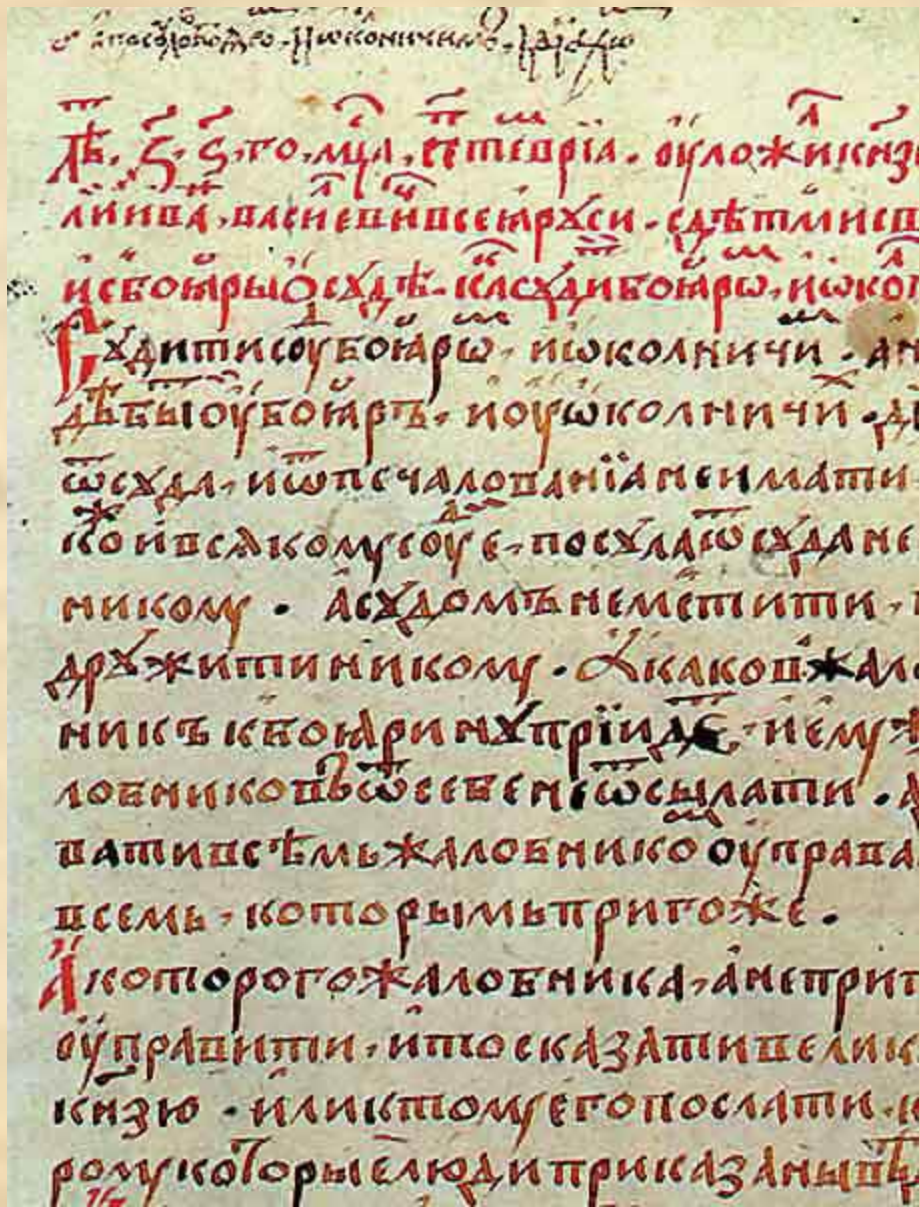 лѣ, ҂ѕ҃, ѕ҃, го, мц҃а, септеврїа, оуложи кнз
ли іива, васиеви всеꙗ рꙋси, с дѣтми св
и с боꙗры ѡ сꙋдѣ, ка сꙋди боꙗрѡ, и ѡкол
Сꙋдити соу боꙗрѡ, и ѡколничи, а н
дѣ бы оу боꙗръ, и оу ѡколничи, д
ѿ сꙋда, и ѿ печалованїа не имати
кои всякому соуе, посꙋла ѿ сꙋда не
никому, а сꙋдомъ не мстити,
дрꙋжити никому, а каков жало
никъ к боꙗринꙋ прїиде, и ему ж
лобниковъ ѿ себе не ѿсылати, а
вати всѣмь жалобнико оуправа
всемь, которымь пригоже.
А которого жалобника, а не приг
оуправити, и то сказати велик
кнзю, или к тому его послати,
рому которые люди приказаны вѣ